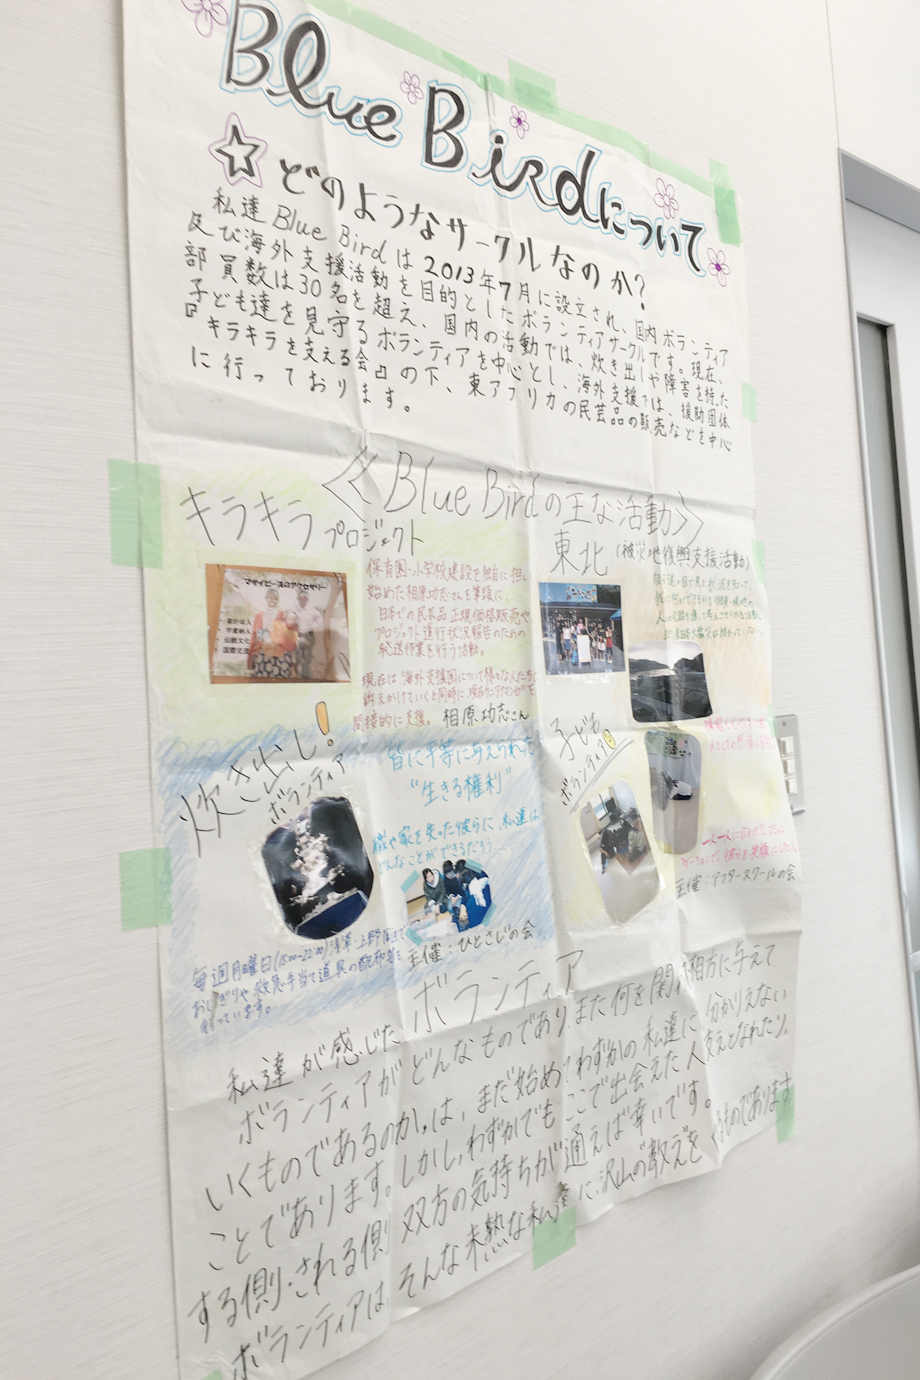 Blue Birdについて
☆どのようなサークルなのか?
私達Blue Birdは2013年7月に設立され、国内ボランティア
及び海外支援活動を目的としたボランティアサークルです。現在、
部員数は30名を超え、国内の活動では、炊き出しや障害を持った
子ども達を見守るボランティアを中心とし、海外支援では、援助団体
『キラキラを支える会』の下、東アフリカの民芸品の販売などを中心
に行っております。
≪Blue Birdの主な活動≫
キラキラプロジェクト
マサイビーズのアクセサリー
国際交流
保育園・小学校建設を独自に担い
始めた相原功志さんを筆頭に、
日本での民芸品正規価格販売や
プロジェクト進行状況報告のための
発送作業を行う活動。
現在は海外支援国について様々な人たちに
訴えかけていくと同時に、現在
間接的に支援。 相原功志さん
東北(被災地復興支援活動)
炊き出し!
ボランティア
皆に平等に与えられた
“生きる権利”
職や家を失った彼らに、私達は
どんなことができるだろう
主催:ひとさじの会
毎週月曜日(18:00~22:00)浅草・上野
おにぎりや救急手当て道具の配布等を
行っています。
子ども
ボランティア
一人一人に合わせたコミュニ
ケーションで彼らを笑顔に
主催:アフタースクールの会
私達が感じたボランティア
ボランティアがどんなものであり、また何を関わる相方に与えて
いくものであるのか、は、まだ始めてわずかの私達に分かりえない
ことであります。しかし、わずかでもここで出会えた人支えとなれたり、
する側・される側双方の気持ちが通えば幸いです。
ボランティアはそんな未熟な私達に、沢山の“教え”を くものであります